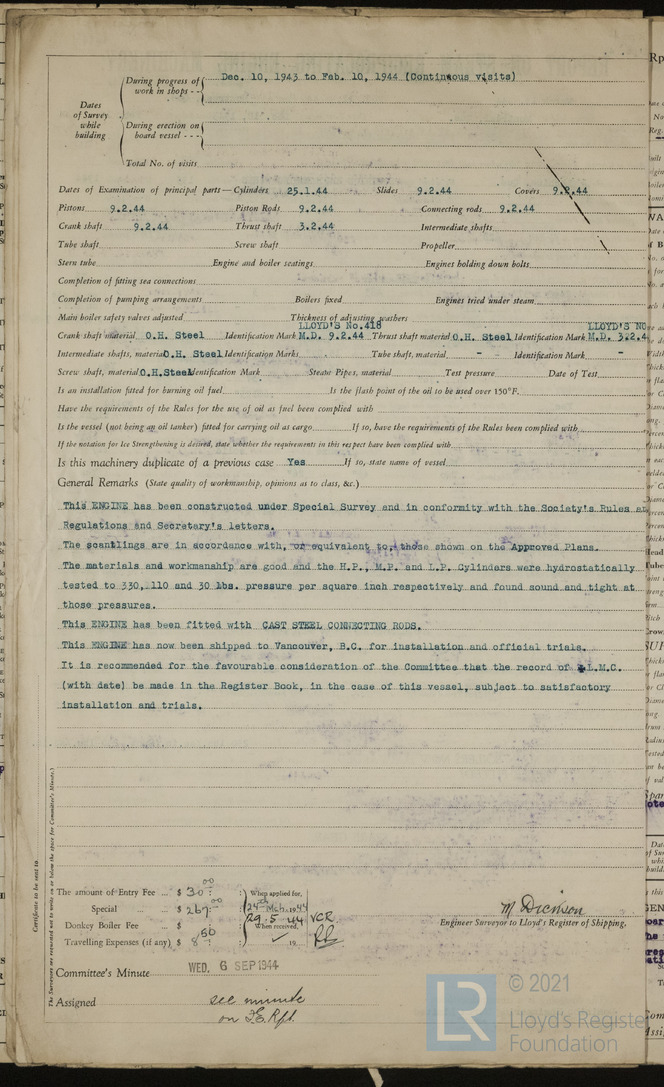 During progress of work in shops - - Dec. 10, 1943 to Feb. 10, 1944 (Continuous visits)
Dates of Survey while building
During erection on board vessel - - -
Total No. of visits
Dates of Examination of principal parts—Cylinders 25.1.44 Slides 9.2.44 Covers 9.2.44
Pistons 9.2.44 Piston Rods 9.2.44 Connecting rods 9.2.44
Crank shaft 9.2.44 Thrust shaft 3.2.44 Intermediate shafts
Tube shaft Screw shaft Propeller
Stern tube Engine and boiler seatings Engines holding down bolts
Completion of fitting sea connections
Completion of pumping arrangements Boilers fixed Engines tried under steam
Main boiler safety valves adjusted Thickness of adjusting washers
LLOYD'S No.418 LLOYD'S NO
Crank shaft material O.H. Steel Identification Mark M.D. 9.2.44 Thrust shaft material O.H. Steel Identification Mark M.D. 3.2.4
Intermediate shafts, material O.H. Steel Identification Marks Tube shaft, material - - Identification Mark -
Screw shaft, material O.H.Steel Identification Mark Steam Pipes, material Test pressure Date of Test
Is an installation fitted for burning oil fuel Is the flash point of the oil to be used over 150°F.
Have the requirements of the Rules for the use of oil as fuel been complied with
Is the vessel (not being an oil tanker) fitted for carrying oil as cargo If so, have the requirements of the Rules been complied with
If the notation for Ice Strengthening is desired, state whether the requirements in this respect have been complied with
Is this machinery duplicate of a previous case Yes If so, state name of vessel
General Remarks (State quality of workmanship, opinions as to class, &c.)
This ENGINE has been constructed under Special Survey and in conformity with the Society's Rules an
Regulations and Secretary's letters.
The scantlings are in accordance with, or equivalent to, those shown on the Approved Plans.
The materials and workmanship are good and the H.P., M.P. and L.P. Cylinders were hydrostatically
tested to 330, 110 and 30 lbs. pressure per square inch respectively and found sound and tight at
those pressures.
This ENGINE has been fitted with CAST STEEL CONNECTING RODS.
This ENGINE has now been shipped to Vancouver, B.C. for installation and official trials.
It is recommended for the favourable consideration of the Committee that the record of L.M.C.
(with date) be made in the Register Book, in the case of this vessel, subject to satisfactory
installation and trials.
Certificate to be sent to
The Surveyors are requested not to write on or below the space for Committee's Minute.
The amount of Entry Fee ... $ 30.00 When applied for,
Special ... ... $ 267.00 24th Mch. 1944
Donkey Boiler Fee ... $ 29.5.44 VCR
When received,
Travelling Expenses (if any) $ 8.50 19
M Dickson
Engineer Surveyor to Lloyd's Register of Shipping.
Committee's Minute WED. 6 SEP 1944
Assigned see minute
on F.E. Rpt.
LR © 2021
Lloyd's Register
Foundation